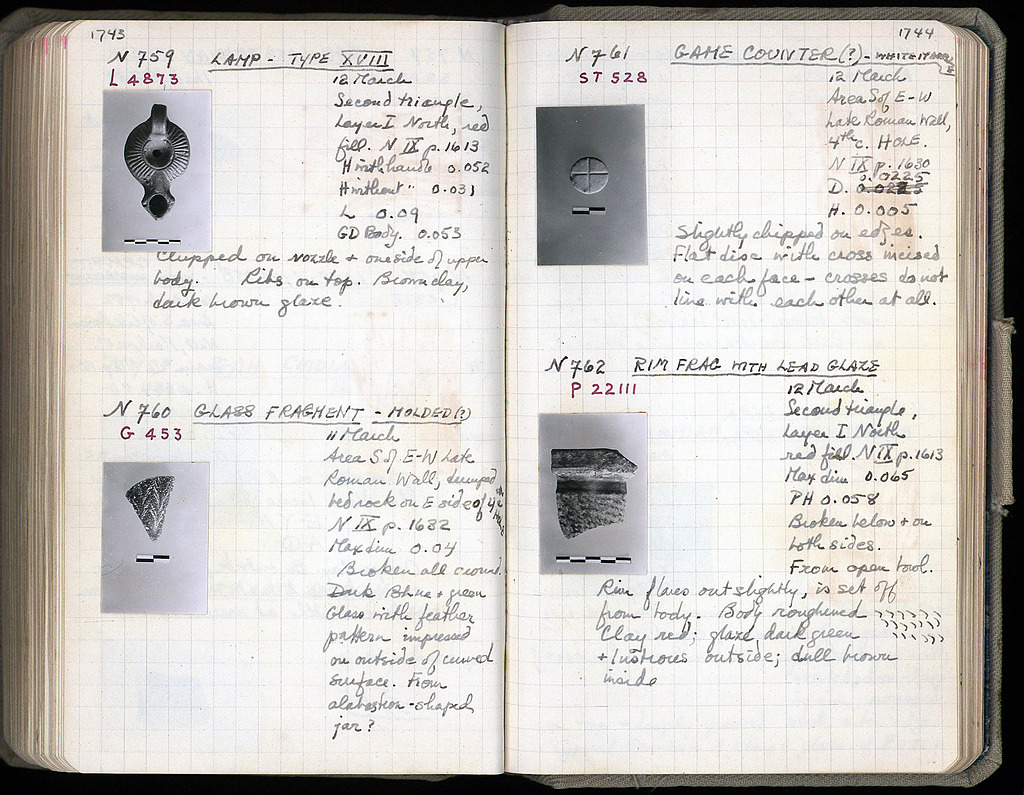 1743
N 759 LAMP - TYPE XVIII
L 4873
12 March
Second triangle,
Layer I North, red
fill. N IX p. 1613
H with handle 0.052
H without " 0.031
L 0.09
GD Body. 0.053
Chipped on nozzle + one side of upper
body. Ribs on top. Brown clay,
dark brown glaze.
N 760 GLASS FRAGMENT - MOLDED(?)
G 453
11 March
Area S of E-W Late
Roman Wall, dumped
bedrock on E side of 4th c.
N IX p. 1632
Max dim 0.04
Broken all around.
Dark Blue + green
Glass with feather
pattern impressed
on outside of curved
surface. From
alabastron-shaped
jar?
1744
N 761 GAME COUNTER(?) - WHITE MARBLE
ST 528
12 March
Area S of E-W
Late Roman Wall,
4th c. HOLE.
N IX p. 1630
0.0225
D.
H. 0.005
Slightly chipped on edges.
Flat disc with cross incised
on each face - crosses do not
line with each other at all.
N 762 RIM FRAG WITH LEAD GLAZE
P 22111
12 March
Second triangle,
Layer I North
red fill. N IX p. 1613
Max dim 0.065
PH 0.058
Broken below + on
both sides.
From open bowl.
Rim flares out slightly, is set off
from body. Body roughened
Clay red; glaze dark green
+ lustrous outside; dull brown
inside